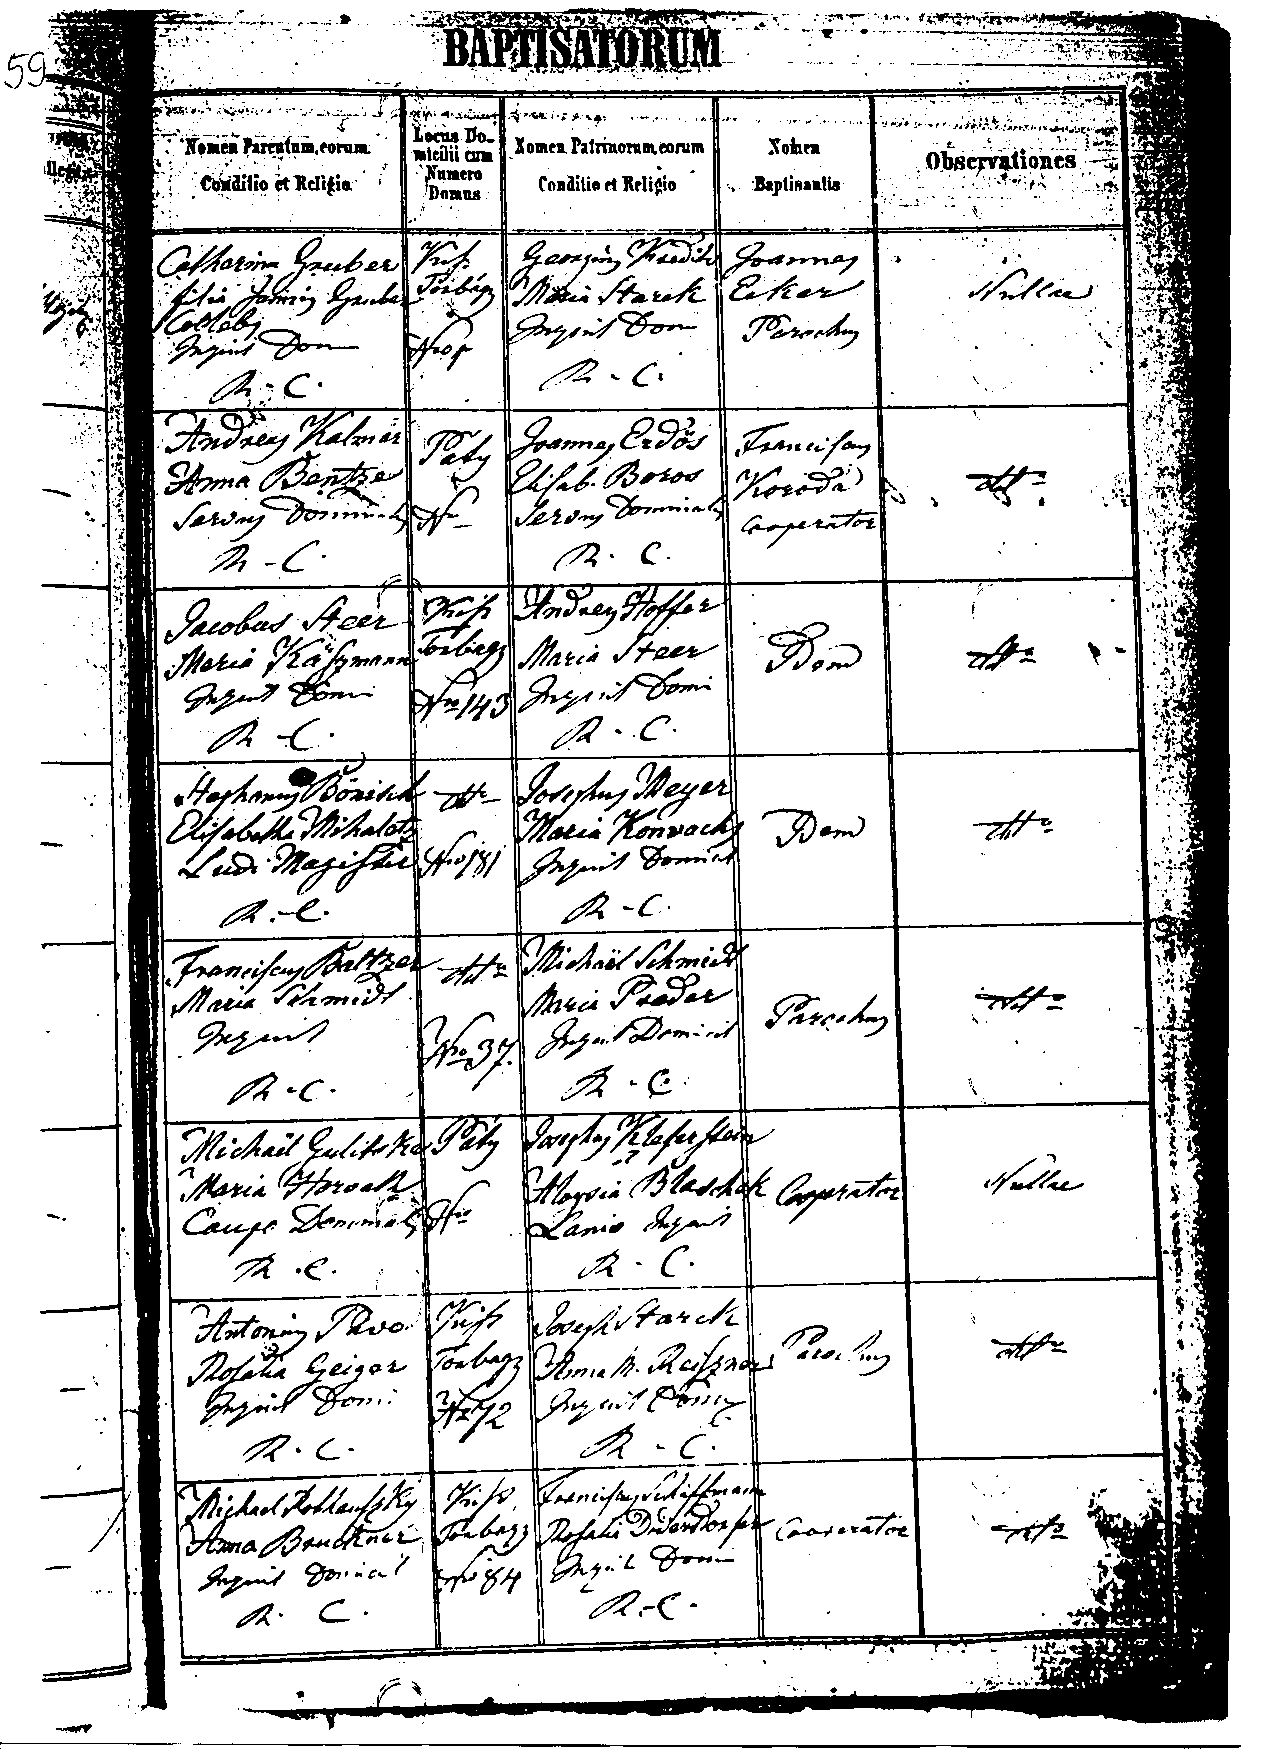 59
BAPTISATORUM
Nomen Parentum, eorum
Conditio et Religio
Locus Do-
micilii cum
Numero
Domus
Nomen Patrinorum, eorum
Conditio et Religio
Nomen
Baptisantis
Observationes
Catharina Gruber
filia Gruber
Caelebs
Inquil Dom
R. C.
Kis
Torbágy
Nro
Georgius
Maria Starck
Inquil Dom
R. C.
Joannes
Ecker
Parochus
Nullae
Andreas Kalmár
Anna Bentze
Servus Dominals
R. C.
Páty
Nro
Joannes Erdős
Elisab. Boros
Servus Dominals
R. C.
Franciscus
Koroda
Cooperator
dtto
Jacobus Steer
Maria Käszmann
Inquil Domi
R. C.
Kiss
Torbagy
Nro 143
Andreas Hoffer
Maria Steer
Inquil Domi
R. C.
Idem
dtto
Stephanus Bönisch
Elisabetha Mihalotz
Ludi Magister
R. C.
dtto
Nro 181
Josephus Meyer
Maria
Inquil Domicil
R. C.
Idem
dtto
Franciscus Baltzer
Maria Schmidt
Inquil
R. C.
dtto
Nro 37.
Michaël Schmidt
Maria Preder
Inquil Domicil
R. C.
Parochus
dtto
Michaël
Maria Horvath
Caupo Dominals
R. C.
Páty
Nro
Josephus
Aloysia Blaschek
Lanio Inquil
R. C.
Cooperator
Nullae
Antonius
Rosalia Geiger
Inquil Domi
R. C.
Kiss
Torbagy
Nro 72
Joseph Starck
Anna M. Reiszner
Inquil Domi
R. C.
Parochus
dtto
Michael
Anna Bruckner
Inquil Domicil
R. C.
Kiss
Torbagy
Nro 84
Franciscus Schiffmann
Rosalia
Inquil Dom
R. C.
Cooperator
dtto